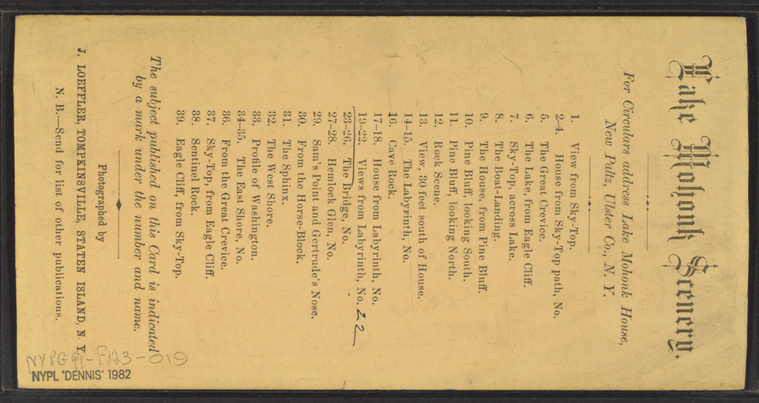 Lake Mohonk Scenery.
For Circulars address Lake Mohonk House,
New Paltz, Ulster Co., N. Y.
1. View from Sky-Top.
2-4. House from Sky-Top path, No.
5. The Great Crevice.
6. The Lake, from Eagle Cliff.
7. Sky-Top, across Lake.
8. The Boat-Landing.
9. The House, from Pine Bluff.
10. Pine Bluff, looking South.
11. Pine Bluff, looking North.
12. Rock Scene.
13. View 30 feet south of House.
14-15. The Labyrinth, No.
16. Cave Rock.
17-18. House from Labyrinth, No.
19-22. Views from Labyrinth, No. 22
23-26. The Bridge, No.
27-28. Hemlock Glen, No.
29. Sam's Point and Gertrude's Nose.
30. From the Horse-Block.
31. The Sphinx.
32. The West Shore.
33. Profile of Washington.
34-35. The East Shore, No.
36. From the Great Crevice.
37. Sky-Top, from Eagle Cliff.
38. Sentinel Rock.
39. Eagle Cliff, from Sky-Top.
The subject published on this Card is indicated
by a mark under the number and name.
Photographed by
J. LOEFFLER, TOMPKINSVILLE, STATEN ISLAND, N Y.
N. B.—Send for list of other publications.
NYPG91-F123-019
NYPL 'DENNIS' 1982